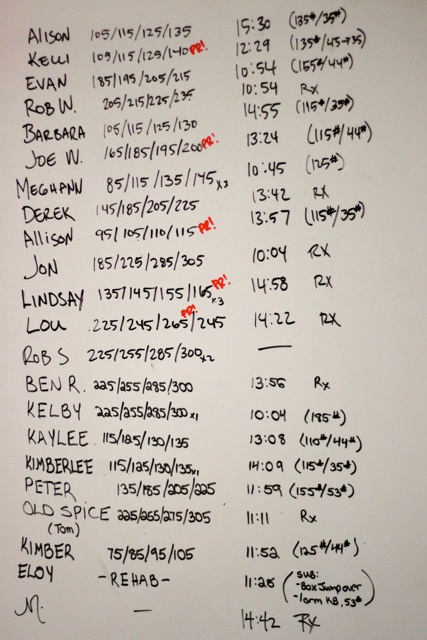 ALISON 105/115/125/135 15:30 (135#/35#)
KELLI 105/115/125/140 PR! 12:29 (135#/45→35)
EVAN 185/195/205/215 10:54 (155#/44#)
ROB W. 205/215/225/235 10:54 Rx
BARBARA 105/115/125/130 14:55 (115#/35#)
JOE W. 165/185/195/200 PR! 13:24 (115#/44#)
MEGHANN 85/115/135/145 x3 10:45 (125#)
DEREK 145/185/205/225 13:42 RX
Allison 95/105/110/115 PR! 13:57 (115#/35#)
JON 185/225/285/305 10:04 RX
LINDSAY 135/145/155/165 x3 PR! 14:58 RX
LOU 225/245/265/245 PR! 14:22 RX
ROB S 225/255/285/300 x2 —
BEN R. 225/255/285/300 13:56 Rx
KELBY 225/255/285/300 x1 10:04 (185#)
KAYLEE 115/125/130/135 13:08 (110#/44#)
KIMBERLEE 115/125/130/135 x1 14:09 (115#/35#)
PETER 135/185/205/225 11:59 (155#/53#)
OLD SPICE 225/255/275/305 11:11 Rx
(Tom)
KIMBER 75/85/95/105 11:52 (125#/44#)
ELOY -REHAB- 11:28 (SUB:
-Box Jumpover
-1arm KB, 53#)
M. — 14:42 RX